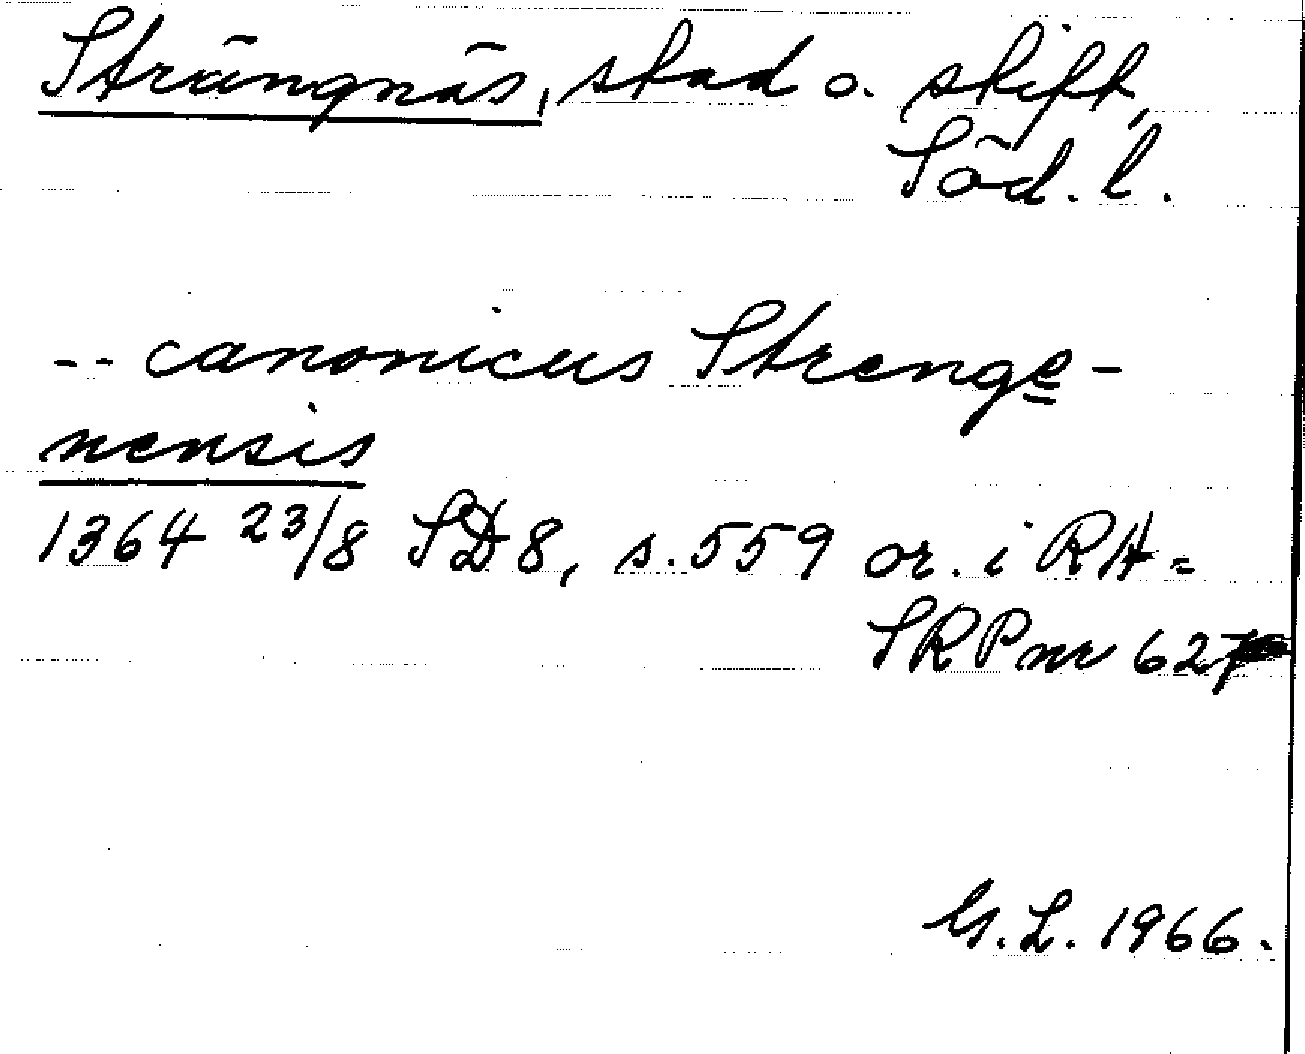 Strängnäs, stad o. stift,
Söd. l.
-- canonicus Strenge-
nensis
1364 23/8 SD 8, s. 559 or. i RA =
SRP nr 627
G. L. 1966.